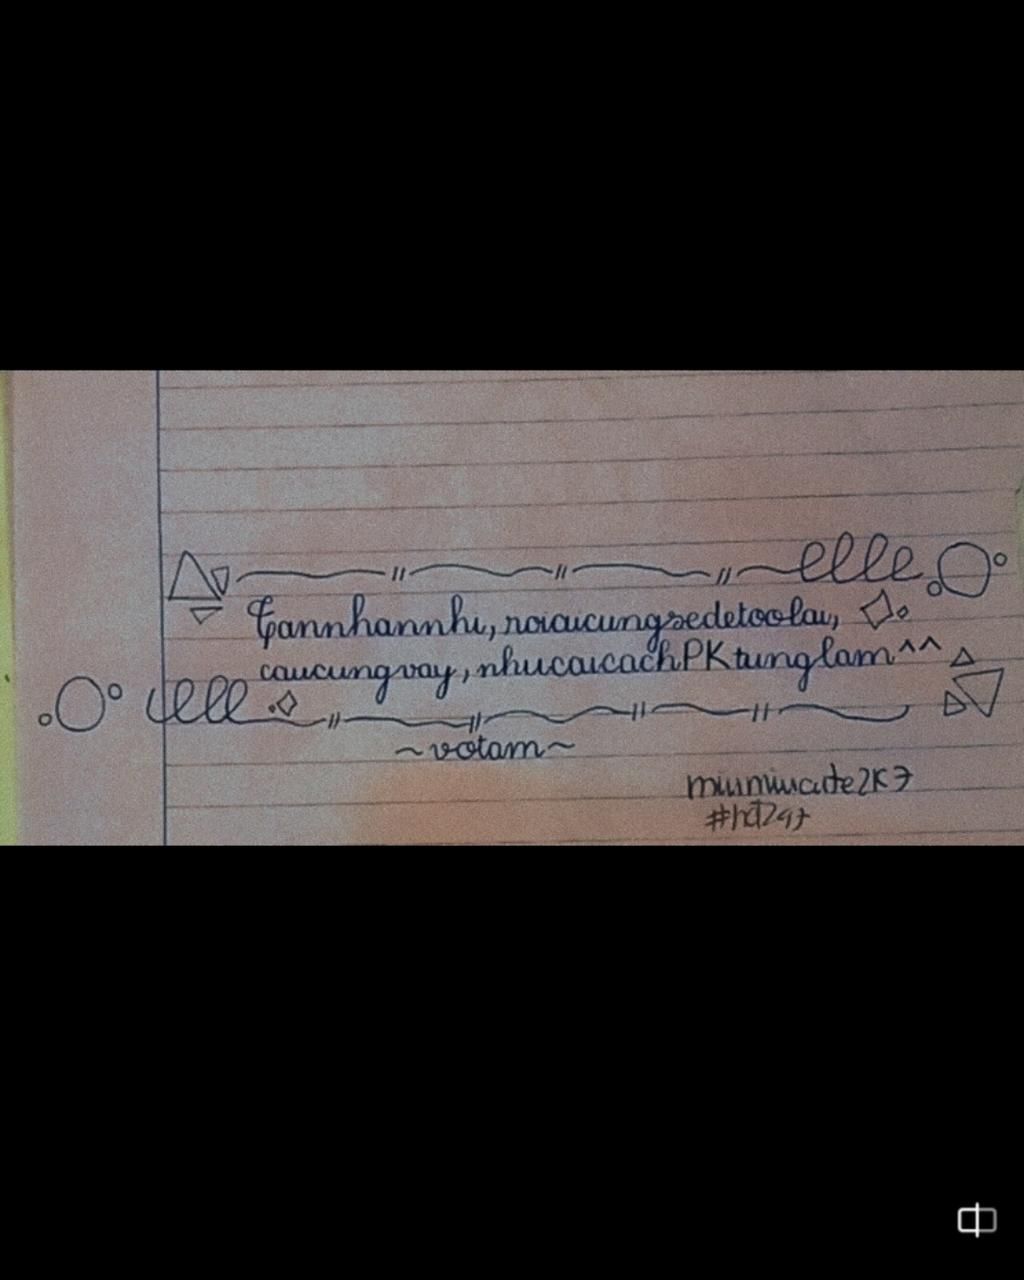 Tannhannhi, roiaicungsedetoolai,
caucungvay, nhucaicachPKtunglam^^
~votam~
miumiucute2K7